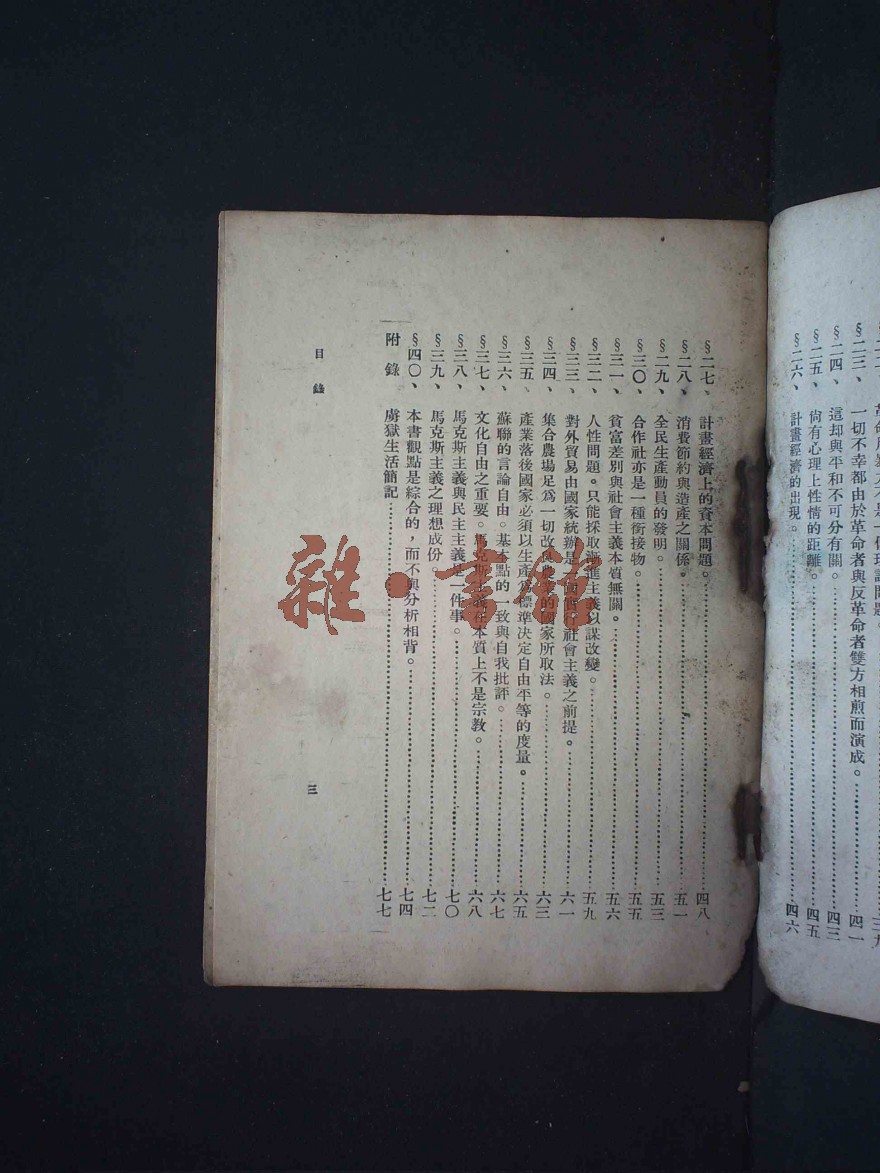 §二三、 一切不幸都由於革命者與反革命者雙方相煎而演成。 四一
§二四、 這却與平和不可分有關。 四三
§二五、 尙有心理上性情的距離。 四五
§二六、 計畫經濟的出現。 四六
§二七、 計畫經濟上的資本問題。 四八
§二八、 消費節約與造產之關係。 五一
§二九、 全民生產動員的發明。 五三
§三〇、 合作社亦是一種銜接物。 五五
§三一、 貧富差別與社會主義本質無關。 五六
§三二、 人性問題。只能採取漸進主義以謀改變。 五九
§三三、 對外貿易由國家統辦是 社會主義之前提。 六一
§三四、 集合農場足爲一切改良農業的國家所取法。 六三
§三五、 產業落後國家必須以生產爲標準決定自由平等的度量。 六五
§三六、 蘇聯的言論自由。基本點的一致與自我批評。 六七
§三七、 文化自由之重要。馬克斯主義在本質上不是宗教。 六八
§三八、 馬克斯主義與民主主義是一件事。 七〇
§三九、 馬克斯主義之理想成份。 七二
§四〇、 本書觀點是綜合的，而不與分析相背。 七四
附錄 虜獄生活簡記 七七
目錄
三
雜·書館